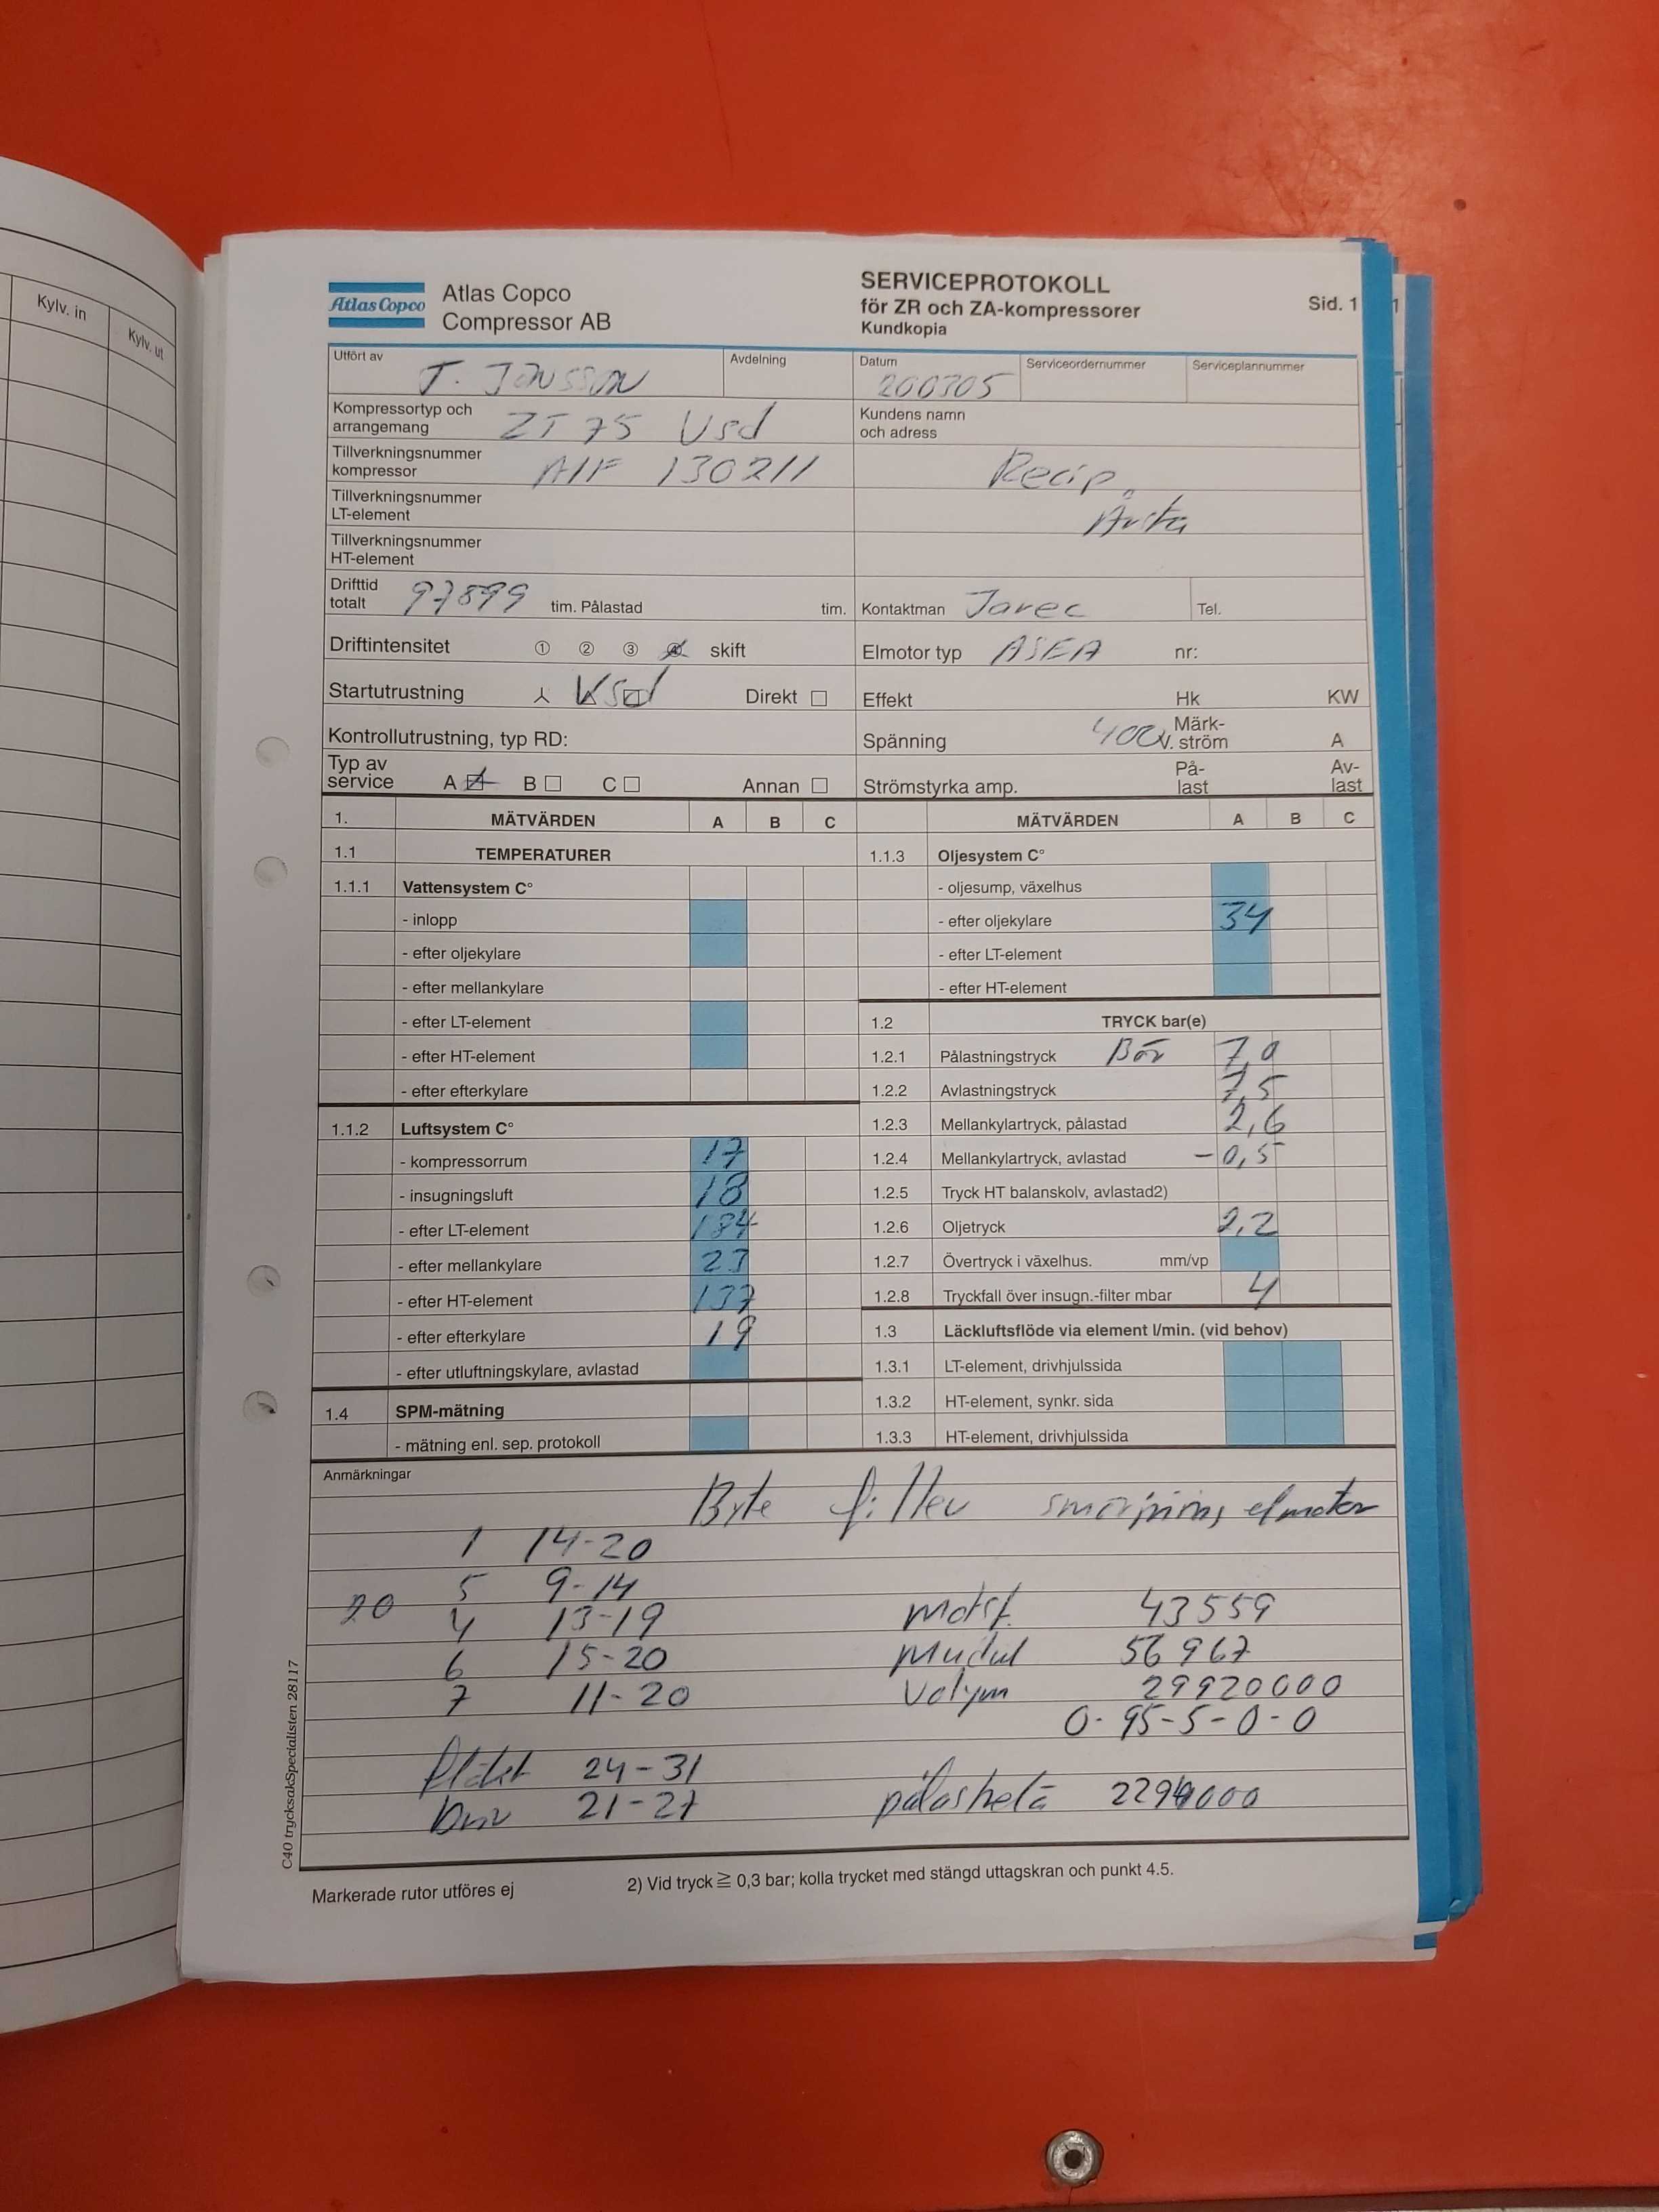 Kylv. in
Kylv. ut
Atlas Copco
Atlas Copco
Compressor AB
SERVICEPROTOKOLL
för ZR och ZA-kompressorer
Kundkopia
Sid. 1
1
Utfört av
T. JONSSON
Avdelning
Datum
200305
Serviceordernummer
Serviceplannummer
Kompressortyp och
arrangemang
ZT 75 Vsd
Kundens namn
och adress
Tillverkningsnummer
kompressor
AIF 130211
Recip.
Tillverkningsnummer
LT-element
Årsta
Tillverkningsnummer
HT-element
Drifttid
totalt
97899 tim. Pålastad tim.
Kontaktman Jarec Tel.
Driftintensitet ① ② ③ ④ skift
Elmotor typ ASEA nr:
Startutrustning Vsd Direkt
Effekt Hk KW
Kontrollutrustning, typ RD:
Spänning 400 V. Märk-
ström A
Typ av
service A B C Annan
Strömstyrka amp. På-
last Av-
last
1. MÄTVÄRDEN A B C
1.1 TEMPERATURER
1.1.1 Vattensystem C°
- inlopp
- efter oljekylare
- efter mellankylare
- efter LT-element
- efter HT-element
- efter efterkylare
1.1.2 Luftsystem C°
- kompressorrum 17
- insugningsluft 18
- efter LT-element 184
- efter mellankylare 23
- efter HT-element 137
- efter efterkylare 19
- efter utluftningskylare, avlastad
1.4 SPM-mätning
- mätning enl. sep. protokoll
MÄTVÄRDEN A B C
1.1.3 Oljesystem C°
- oljesump, växelhus
- efter oljekylare 34
- efter LT-element
- efter HT-element
1.2 TRYCK bar(e)
1.2.1 Pålastningstryck Bör 7,0
1.2.2 Avlastningstryck 7,5
1.2.3 Mellankylartryck, pålastad 2,6
1.2.4 Mellankylartryck, avlastad -0,5
1.2.5 Tryck HT balanskolv, avlastad2)
1.2.6 Oljetryck 2,2
1.2.7 Övertryck i växelhus. mm/vp
1.2.8 Tryckfall över insugn.-filter mbar 4
1.3 Läckluftsflöde via element l/min. (vid behov)
1.3.1 LT-element, drivhjulssida
1.3.2 HT-element, synkr. sida
1.3.3 HT-element, drivhjulssida
Anmärkningar
Byte filter smörjning elmotor
1 14-20
5 9-14
20 4 13-19 motst. 43559
6 15-20 Mudul 56967
7 11-20 Volym 29920000
0-95-5-0-0
fläkt 24-31
Driv 21-27
C40 trycksakSpecialisten 28117
Markerade rutor utföres ej
2) Vid tryck ≧ 0,3 bar; kolla trycket med stängd uttagskran och punkt 4.5.